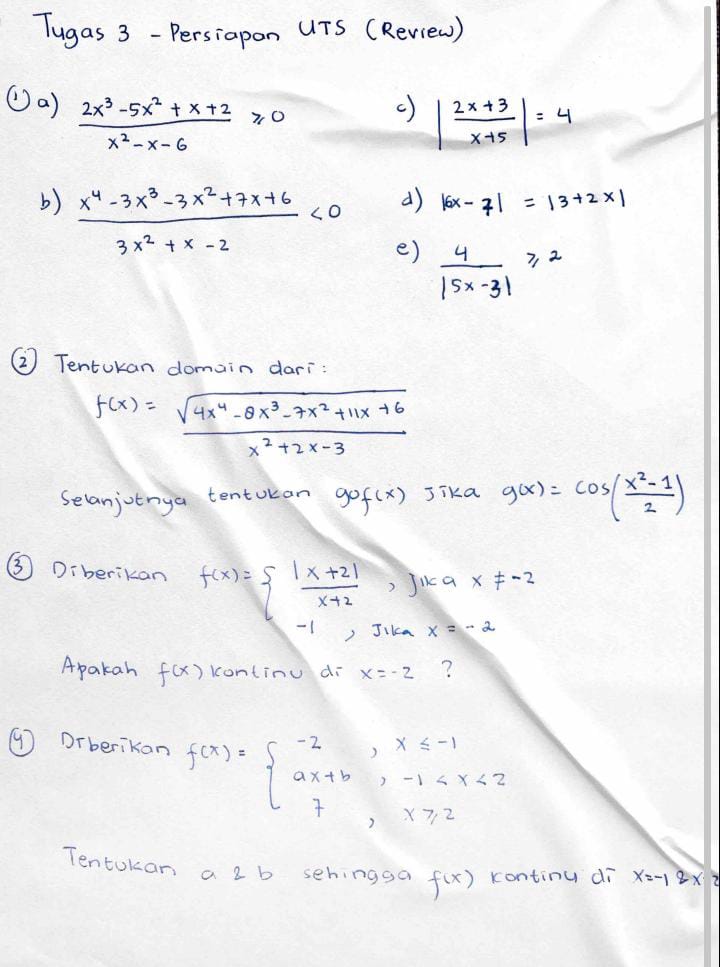 Tugas 3 - Persiapan UTS (Review)
① a) 2x³ -5x² + x +2 / x² - x - 6 ⩾ 0
c) | 2x +3 / x+5 | = 4
b) x⁴ -3x³ -3x² +7x+6 / 3x² + x - 2 < 0
d) |6x - 7| = |3+2x|
e) 4 / |5x -3| ⩾ 2
② Tentukan domain dari :
f(x) = √4x⁴ -8x³ -7x² +11x +6 / x² +2x -3
Selanjutnya tentukan gof(x) jika g(x) = cos(x² - 1 / 2)
③ Diberikan f(x) = { |x +2| / x+2 , Jika x ≠ -2
-1 , Jika x = -2
Apakah f(x) kontinu di x=-2 ?
④ Diberikan f(x) = { -2 , x ≤ -1
ax+b , -1 < x < 2
7 , x ⩾ 2
Tentukan a & b sehingga f(x) kontinu di x=-1 & x=2